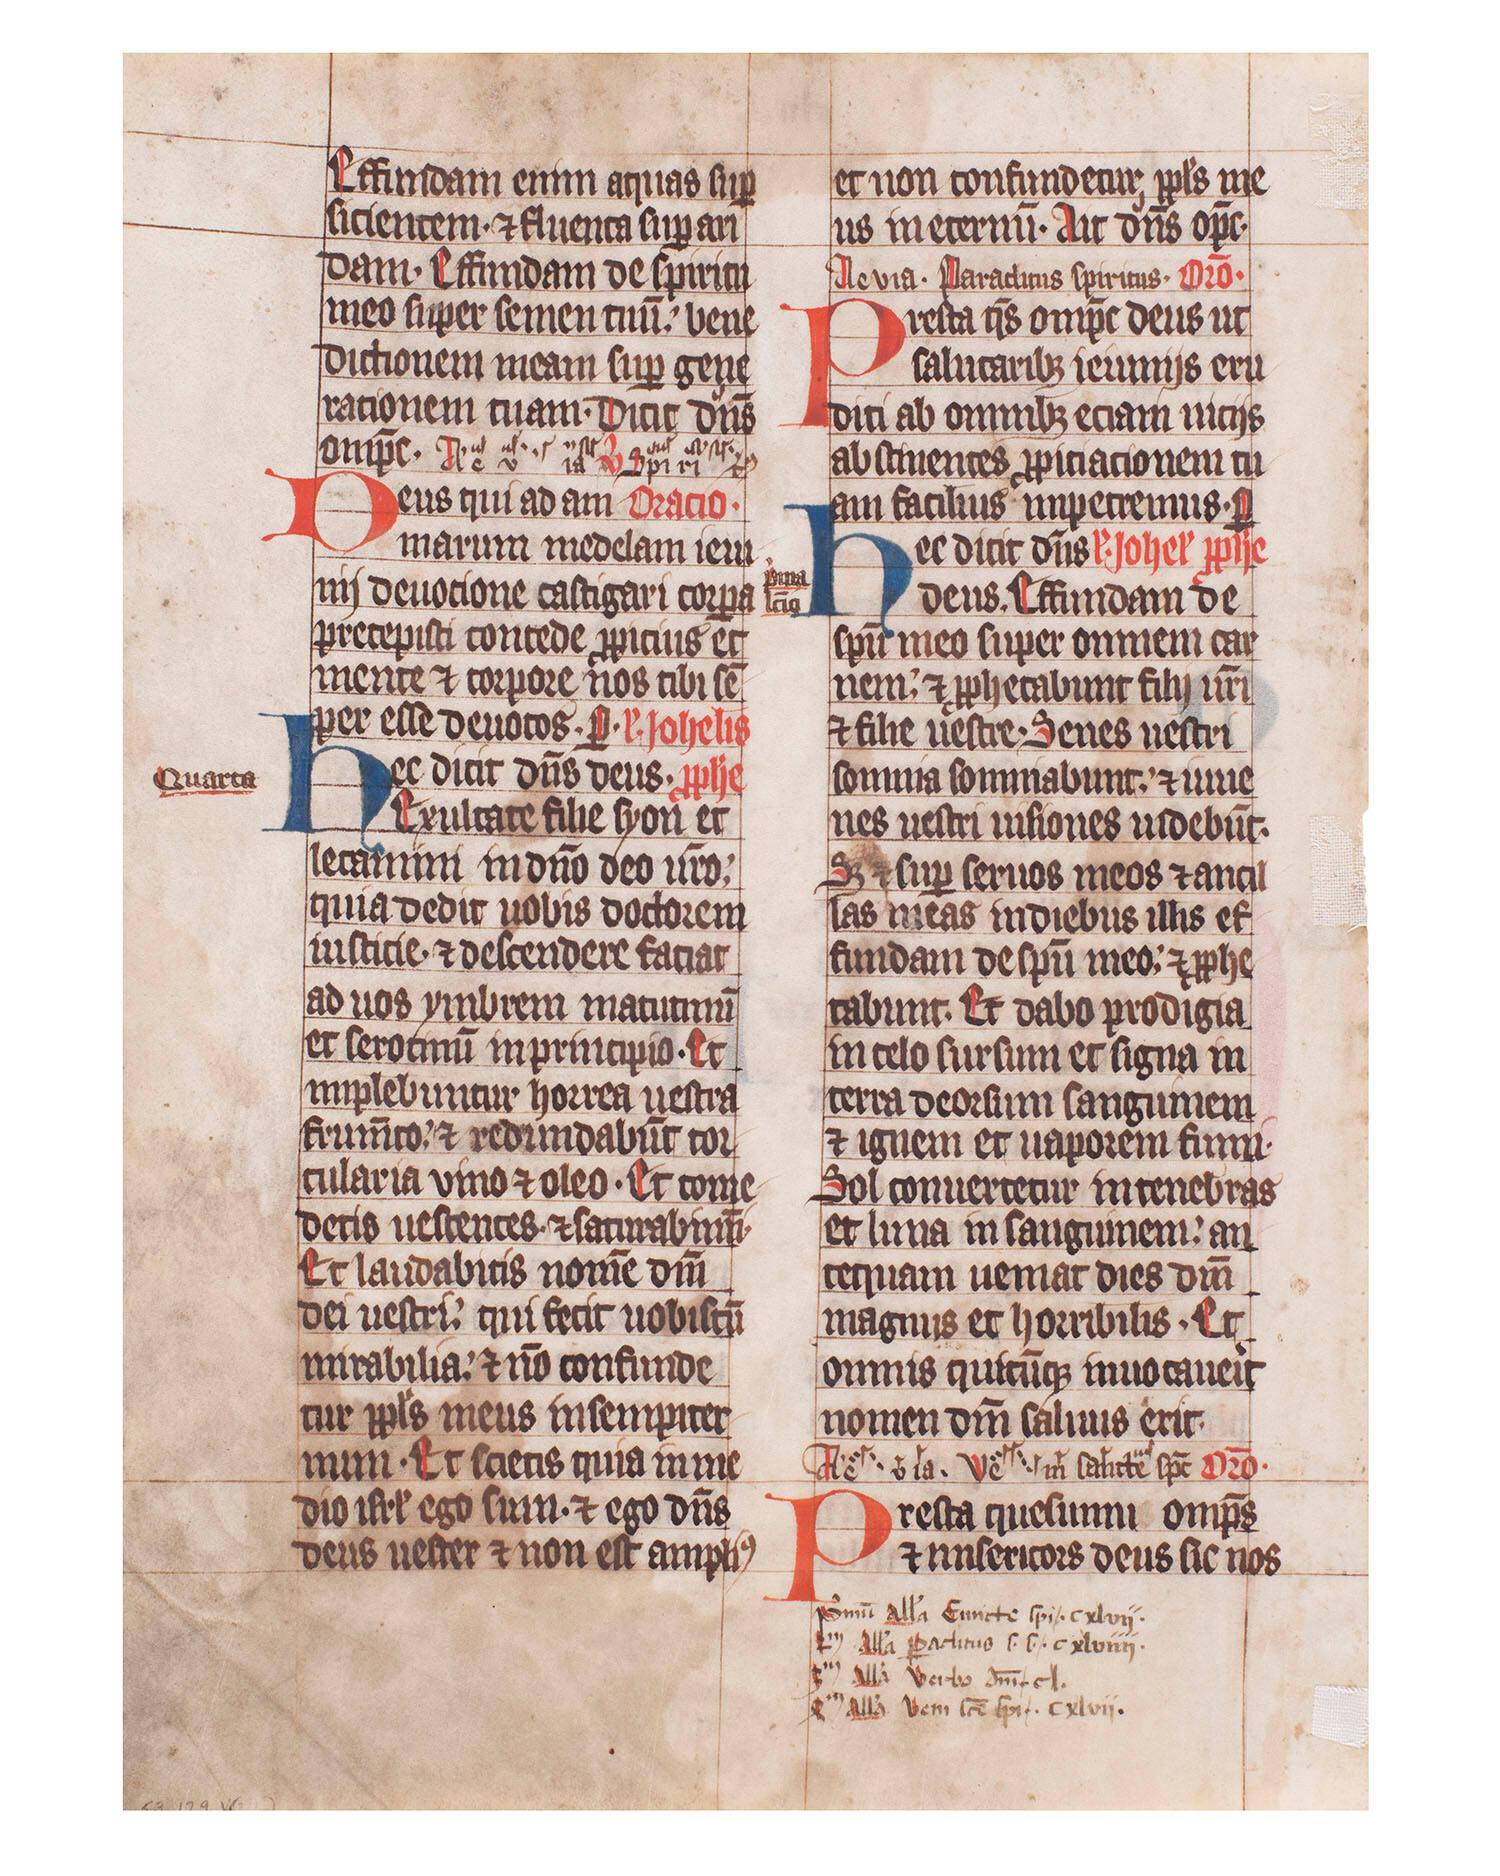 Effundam enim aquas sup
sicientem · ⁊ fluenta sup ari
dam · Effundam de spiritu
meo super semen tuū : bene
dictionem meam sup gene
rationem tuam · Dicit dn̄s
omp̄c · Ae v ia V Spiri
Deus qui ad am Oracio ·
marum medelam ieiu
nij deuotione castigari corpa
precepisti concede ꝓpicius et
mente ⁊ corpore nos tibi sē
per esse deuotos · P · l · Johelis
Quarta
hec dicit dn̄s deus · ꝓphe
Exultate filie syon et
letamini in dn̄o deo ur̄o :
quia dedit uobis doctorem
iusticie · ⁊ descendere faciat
ad uos ymbrem matutinū
et serotinū in principio · Et
implebuntur horrea uestra
frumēto : ⁊ redundabūt tor
cularia vino ⁊ oleo · Et come
detis uescentes · ⁊ saturabimī ·
Et laudabitis nomē dn̄i
dei uestri : qui fecit uobiscū
mirabilia : ⁊ nō confunde
tur ppl's meus in sempiter
num · Et scietis quia in me
dio isrl ego sum · ⁊ ego dn̄s
deus uester ⁊ non est ampliꝰ
et non confundetur ppl's me
us in eternū · Ait dn̄s op̄c ·
Aevia · Paraclitus spiritus · Orō ·
Presta qs̄ omp̄c deus ut
salutaribꝫ ieiunijs eru
diti ab omnibꝫ eciam uicijs
abstinentes ꝓpiciationem tu
am facilius impetremus · P
hec dicit dn̄s l · Johel ꝓphe
pma
lc̄io
deus · Effundam de
spū meo super omnem car
nem : ⁊ ꝓphetabunt filij ur̄i
⁊ filie uestre · Senes uestri
somnia somniabunt : ⁊ iuue
nes uestri uisiones uidebūt ·
Sꝫ ⁊ sup seruos meos ⁊ ancil
las meas in diebus illis ef
fundam de spū meo : ⁊ ꝓphe
tabunt · Et dabo prodigia
in celo sursum et signa in
terra deorsum sanguinem
⁊ ignem et uaporem fumi ·
Sol conuertetur in tenebras
et luna in sanguinem : an
tequam ueniat dies dn̄i
magnus et horribilis · Et
omnis quicūqꝫ inuocauerit
nomen dn̄i saluus erit ·
Ae · v ia · Ve in sancte spc̄ Orō ·
Presta quesumu omp̄s
⁊ misericors deus sic nos
Pimū all'a Emicte spi · cxlvii ·
all'a Paclitus s · s · cxlviiii ·
all'a Verbo dn̄i · cl ·
all'a Veni sc̄e spi · cxlvii ·